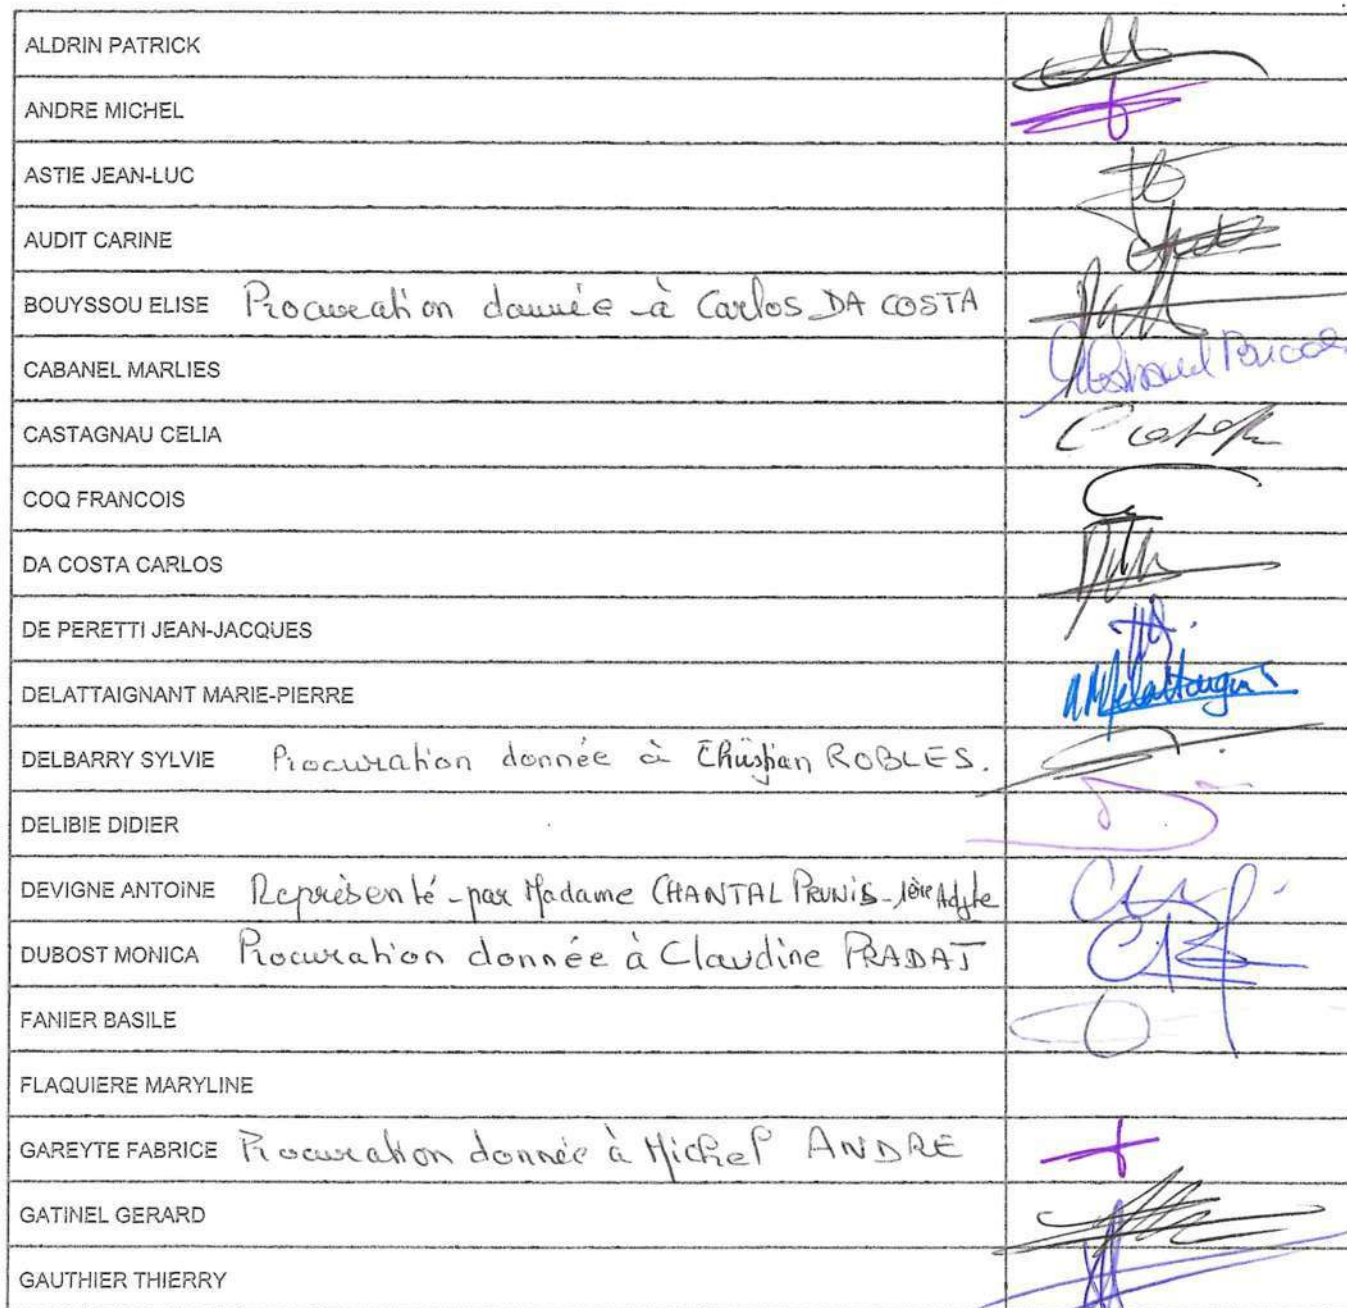 ALDRIN PATRICK
ANDRE MICHEL
ASTIE JEAN-LUC
AUDIT CARINE
BOUYSSOU ELISE Procuration donnée à Carlos DA COSTA
CABANEL MARLIES
CASTAGNAU CELIA
COQ FRANCOIS
DA COSTA CARLOS
DE PERETTI JEAN-JACQUES
DELATTAIGNANT MARIE-PIERRE
DELBARRY SYLVIE Procuration donnée à Christian ROBLES.
DELIBIE DIDIER
DEVIGNE ANTOINE Représenté par Madame CHANTAL PRUNIS - 1ère Adjte
DUBOST MONICA Procuration donnée à Claudine PRADAT
FANIER BASILE
FLAQUIERE MARYLINE
GAREYTE FABRICE Procuration donnée à Michel ANDRE
GATINEL GERARD
GAUTHIER THIERRY